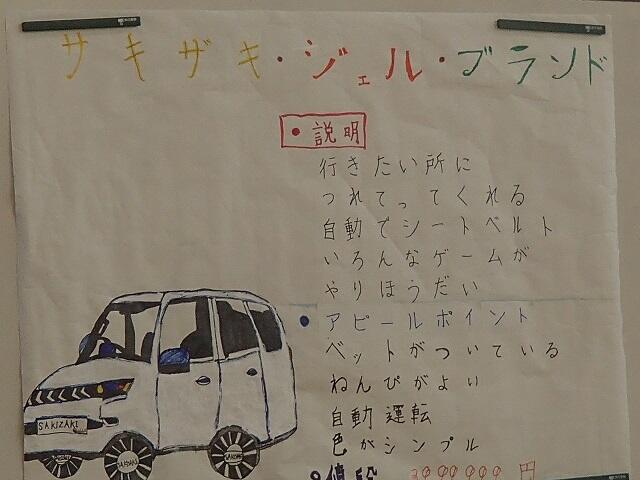 サキザキ・ジェル・ブランド
・説明
行きたい所に
つれてってくれる
自動でシートベルト
いろんなゲームが
やりほうだい
・アピールポイント
ベットがついている
ねんぴがよい
自動運転
色がシンプル
SAKIZAKI
値段 円